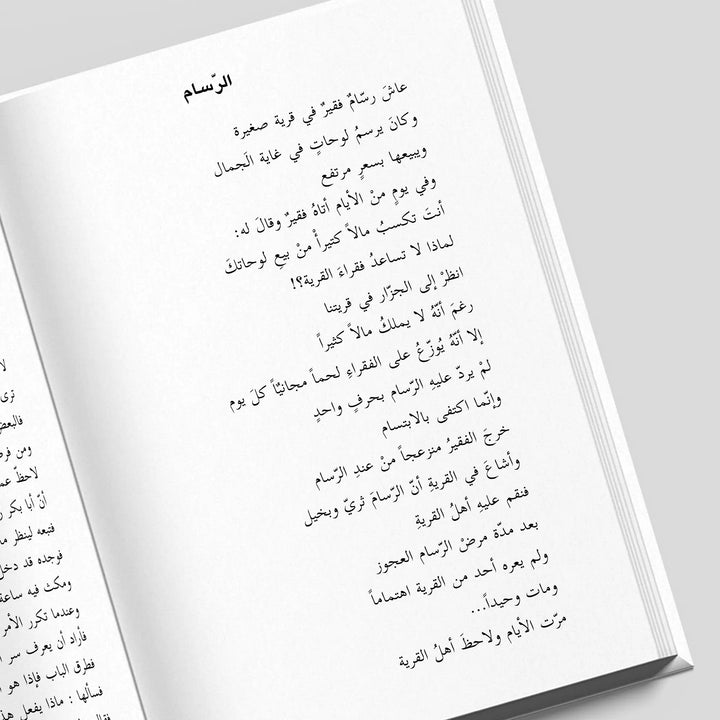 الرّسام
عاشَ رسّامٌ فقيرٌ في قرية صغيرة
وكانَ يرسمُ لوحاتٍ في غاية الَجمال
ويبيعها بسعرٍ مرتفع
وفي يومٍ منْ الأيام أتاهُ فقيرٌ وقالَ له:
أنتَ تكسبُ مالاً كثيراً منْ بيعِ لوحاتكَ
لماذا لا تساعدُ فقراءَ القرية؟!
انظرْ إلى الجزّار في قريتنا
رغمَ أنّهُ لا يملكُ مالاً كثيراً
إلا أنّهُ يُوزّعُ على الفقراءِ لحماً مجانيّاً كلَ يوم
لمْ يردّ عليهِ الرّسام بحرفٍ واحدٍ
وإنّما اكتفى بالابتسام
خرجَ الفقيرُ منزعجاً منْ عندِ الرّسام
وأشاعَ في القريةِ أنّ الرّسامَ ثريّ وبخيل
فنقم عليهِ أهلُ القريةِ
بعد مدّة مرضْ الرّسام العجوز
ولم يعره أحد من القرية اهتماماً
ومات وحيداً...
مرّت الأيام ولاحظَ أهلُ القرية
لا
ترى
فالبعض
ومن
لاحظّ
أنّ أبا بكر
فتبعه لينظر
فوجده قد دخل
ومكث فيه ساعة
وعندما تكرر الأمر
فأراد أن يعرف سر
فطرق الباب فإذا هو
فسألها : ماذا يفعل